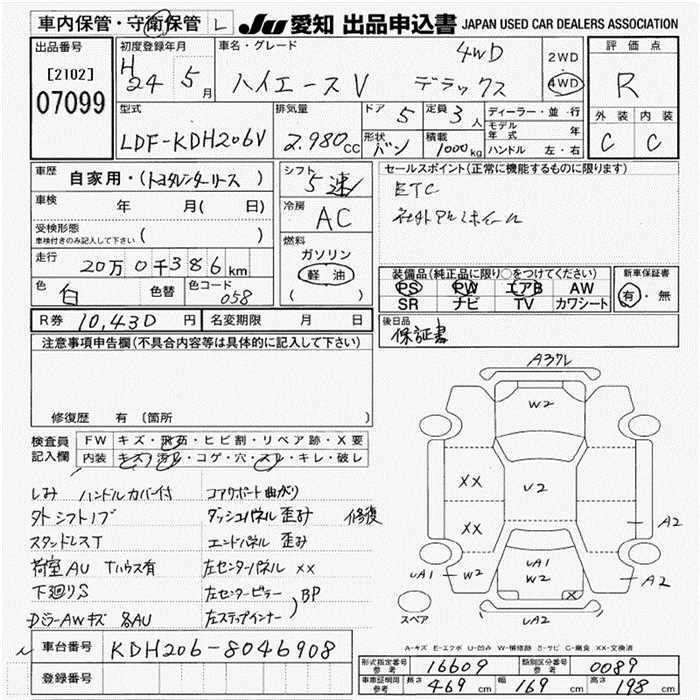 車内保管・守衛保管 L
JU 愛知 出品申込書 JAPAN USED CAR DEALERS ASSOCIATION
出品番号
[2102]
07099
初度登録年月
H24 5月
車名・グレード
4WD
ハイエースV デラックス
2WD
4WD
評価点
R
外装 内装
C C
型式
LDF-KDH206V
排気量
2.980cc
ドア 5
形状 バン
定員 3人
積載 1000kg
ディーラー・並・行
モデル年式 年
ハンドル 左・右
車歴 自家用・(トヨタレンタリース)
車検 年 月( 日)
受検形態
車検付きのみ記入して下さい ( )
走行 20万0千386km
色 白 色替 色コード 058
シフト
5速
冷房
AC
燃料
ガソリン
軽油
( )
セールスポイント(正常に機能するものに限ります)
ETC
社外アルミホイール
装備品(純正品に限り○をつけてください)
PS PW エアB AW
SR ナビ TV カワシート
新車保証書
有・無
R券 10,430円 名変期限 月 日
後日品
保証書
注意事項申告欄(不具合内容等は具体的に記入して下さい)
修復歴 有 〔箇所 〕
検査員記入欄
FW キズ・飛石・ヒビ割・リペア跡・X要
内装 キズ・汚れ・コゲ・穴・スレ・キレ・破レ
しみ ハンドルカバー付
外シフトノブ
スタッドレスT
荷室AU Tハウス有
下廻りS
DミラーAWキズ 各AU
コアサポート曲がり
ダッシュパネル歪み 修復
エンドパネル歪み
左センターパネル XX
左センターピラー
左ステップインナー BP
A3ワレ
W2
XX
XX
U2
A2
UA1
W2
UA1
W2
X
A2
UA2
スペア
A-キズ E-エクボ U-凹み W-補修跡 S-サビ C-腐食 XX-交換済
車台番号 KDH206-8046908
登録番号
形式指定番号 参考 16609
類別区分番号 参考 0089
車車証明用 参考 長さ 469cm 幅 169cm 高さ 198cm